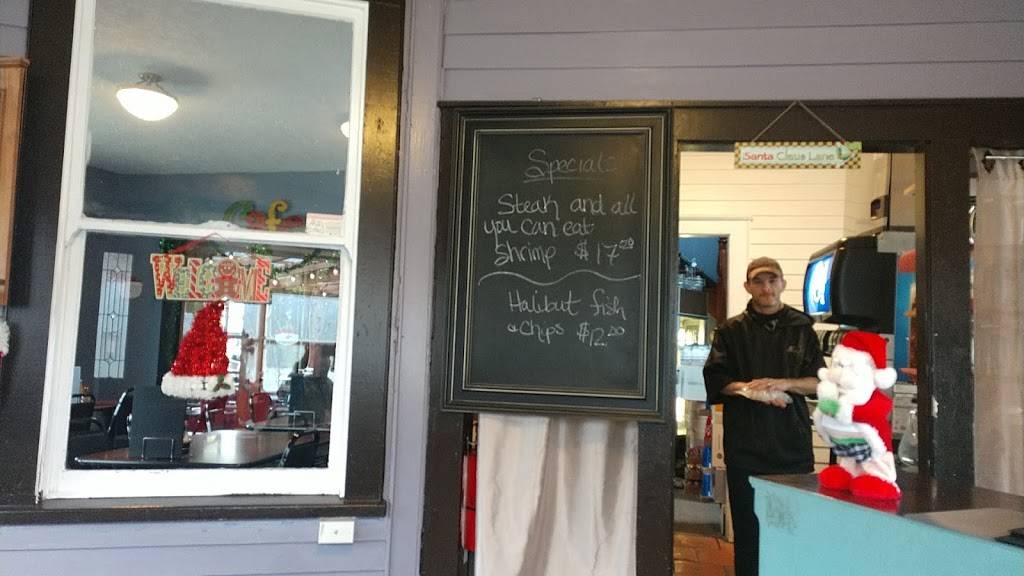 Cafe
WELCOME
Specials
Steak and all
you can eat
Shrimp $17.00
Halibut fish
& Chps $12.00
Santa Claus Lane